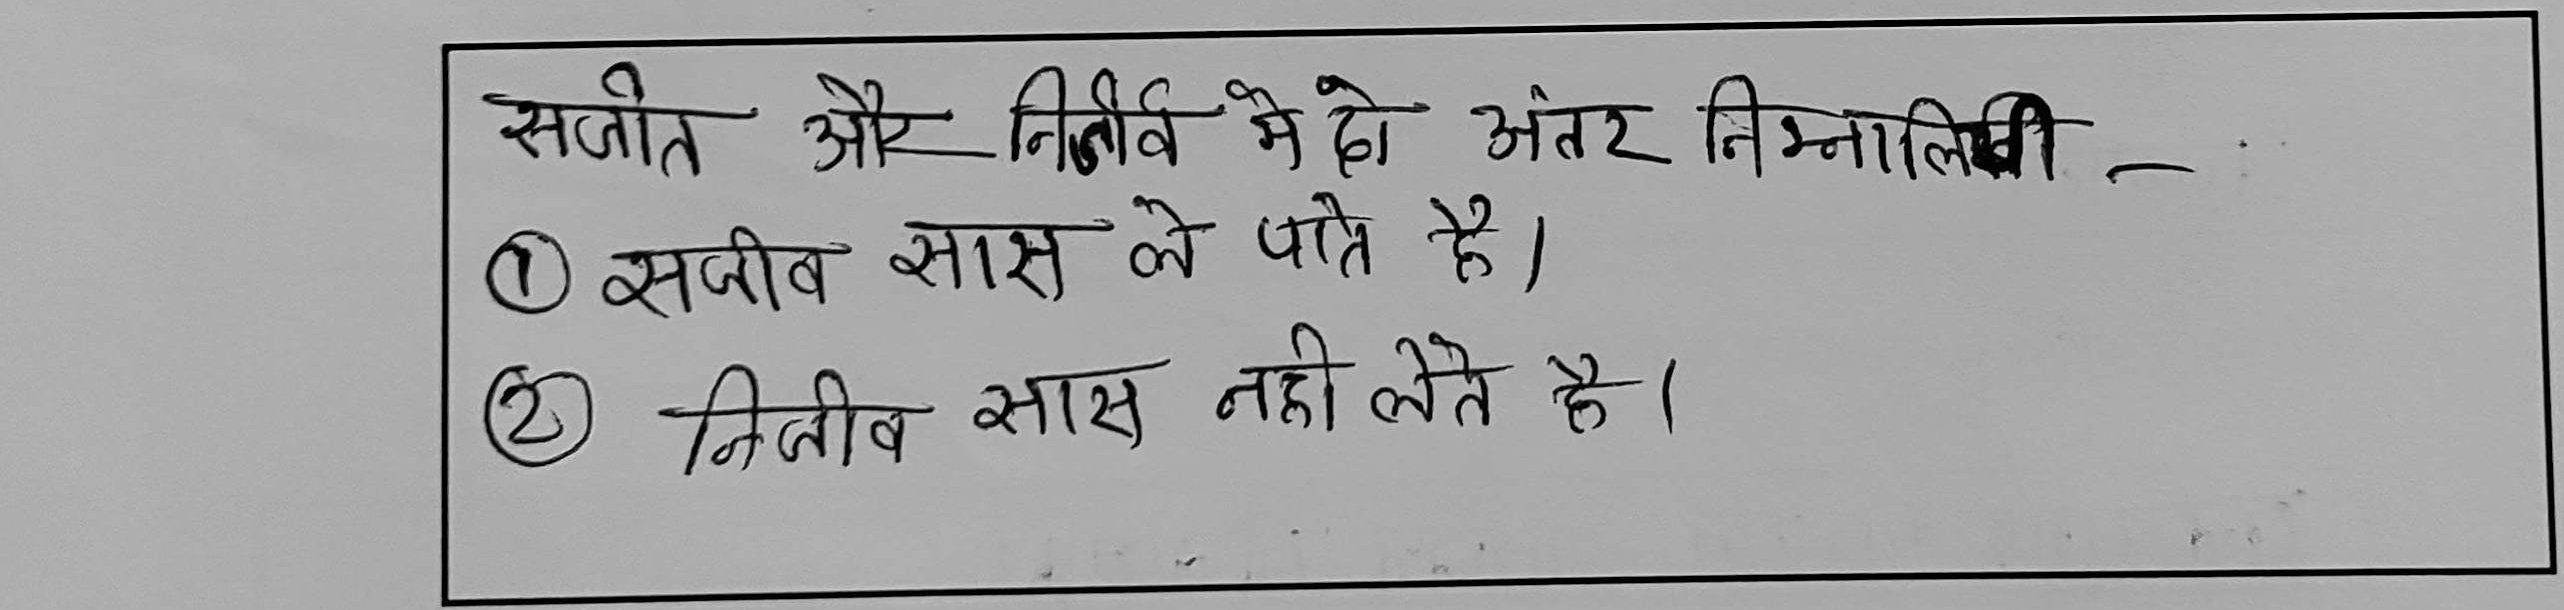 सजीत और निर्जीव मे दो अंतर निम्नालिखी –
① सजीव सास ले पाते है।
② निजीव सास नही लेते है।